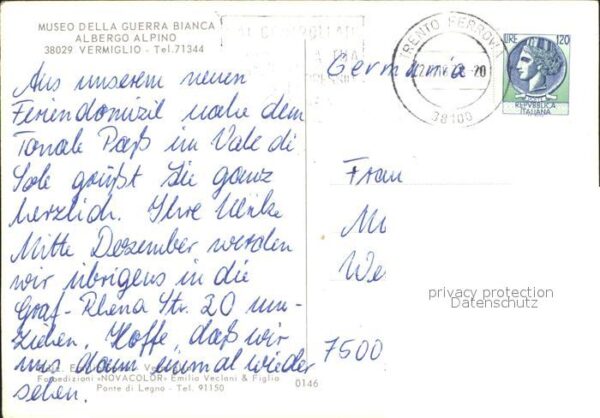 MUSEO DELLA GUERRA BIANCA
ALBERGO ALPINO
38029 VERMIGLIO - Tel.71344
Aus unserem neuen
Feriendomizil nahe dem
Tonale Paß im Vale di
Sole grüßt Sie ganz
herzlich. Ihre Ulrike
Mitte Dezember werden
wir übrigens in die
Graf-Rhena Str. 20 um-
ziehen. Hoffe, daß wir
uns dann einmal wieder
sehen.
Fotoedizioni «NOVACOLOR» Emilio Veclani & Figlio
Ponte di Legno - Tel. 91150
0146
TRENTO FERROVIA
38100
LIRE 120
REPVBBLICA
ITALIANA
Germania
Frau
7500
privacy protection
Datenschutz